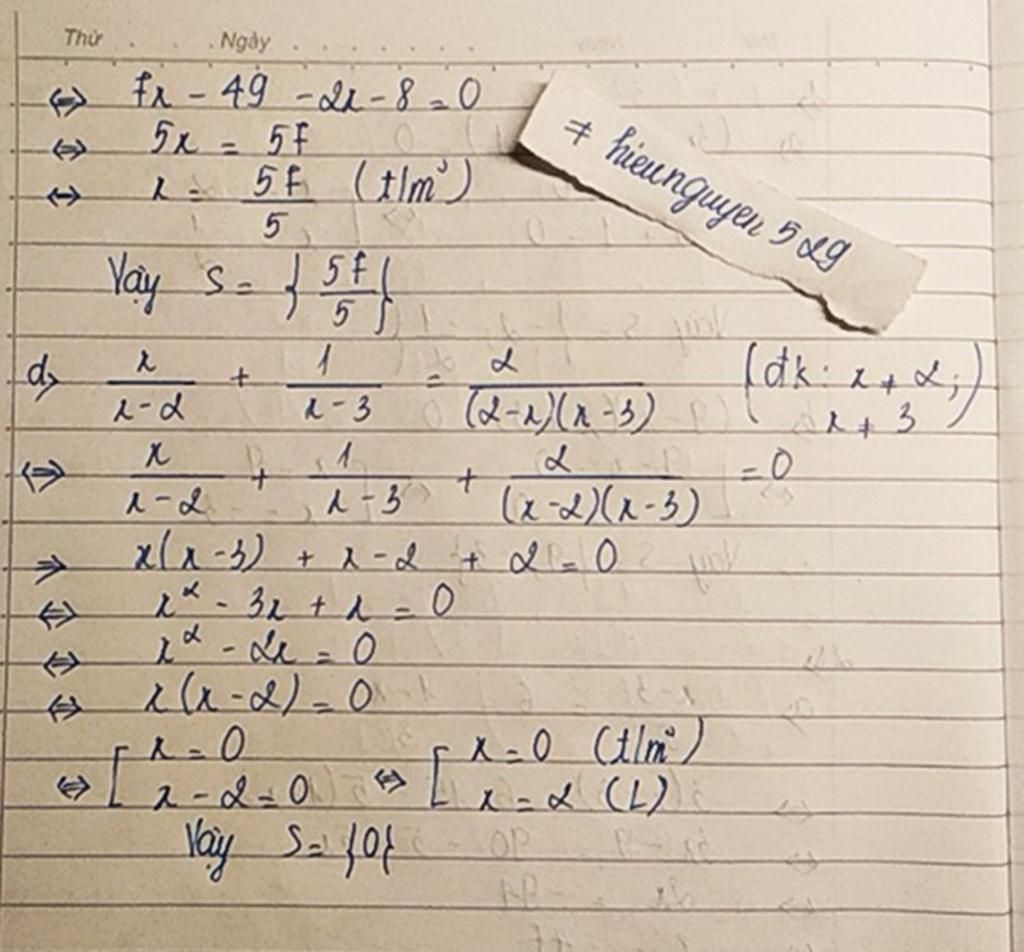 Thứ Ngày
⇔ 7x - 49 - 2x - 8 = 0
⇔ 5x = 57
⇔ x = 57/5 (t/m³)
⇒ hieunguyen 529
Vậy S = {57/5}
d) x/(x-2) + 1/(x-3) = 2/((2-x)(x-3)) (đk: x ≠ 2; x ≠ 3)
⇔ x/(x-2) + 1/(x-3) + 2/((x-2)(x-3)) = 0
⇒ x(x-3) + x - 2 + 2 = 0
⇔ x² - 3x + x = 0
⇔ x² - 2x = 0
⇔ x(x-2) = 0
⇔ [ x = 0 ⇔ [ x = 0 (t/m³)
x - 2 = 0 x = 2 (L)
Vậy S = {0}